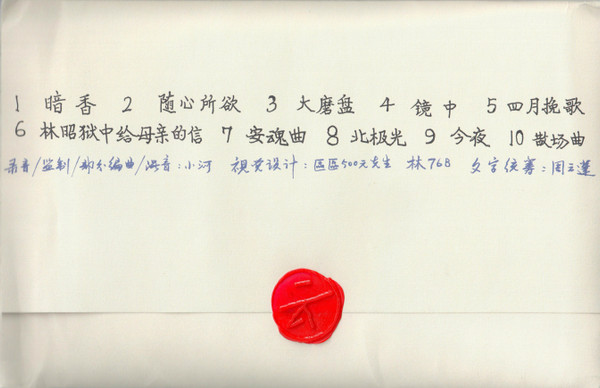 1 暗香 2 随心所欲 3 大磨盘 4 镜中 5 四月挽歌
6 林昭狱中给母亲的信 7 安魂曲 8 北极光 9 今夜 10 散场曲
录音/监制/部分编曲/混音:小河 视觉设计:区区500元先生 林768 文字统筹:周云蓬